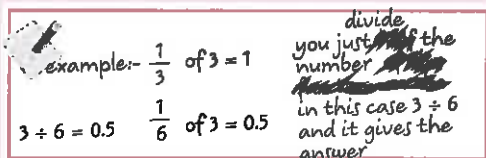 example:- 1/3 of 3 = 1
3 ÷ 6 = 0.5 1/6 of 3 = 0.5
divide
you just the
number
in this case 3 ÷ 6
and it gives the
answer